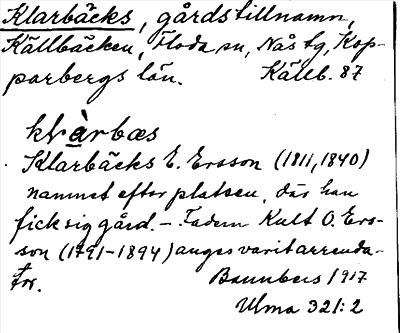 Klarbäcks, gårdstillnamn,
Källbäcken, Floda sn, Nås tg, Kop-
parbergs län. Källb. 87
klàrbæs
Klarbäcks E. Ersson (1811, 1840)
namnet efter platsen, där han
fick sig gård. – Fadern Kult O. Ers-
son (1791–1894) anges varit arrenda-
tor. Bannbers 1917
Ulma 321:2